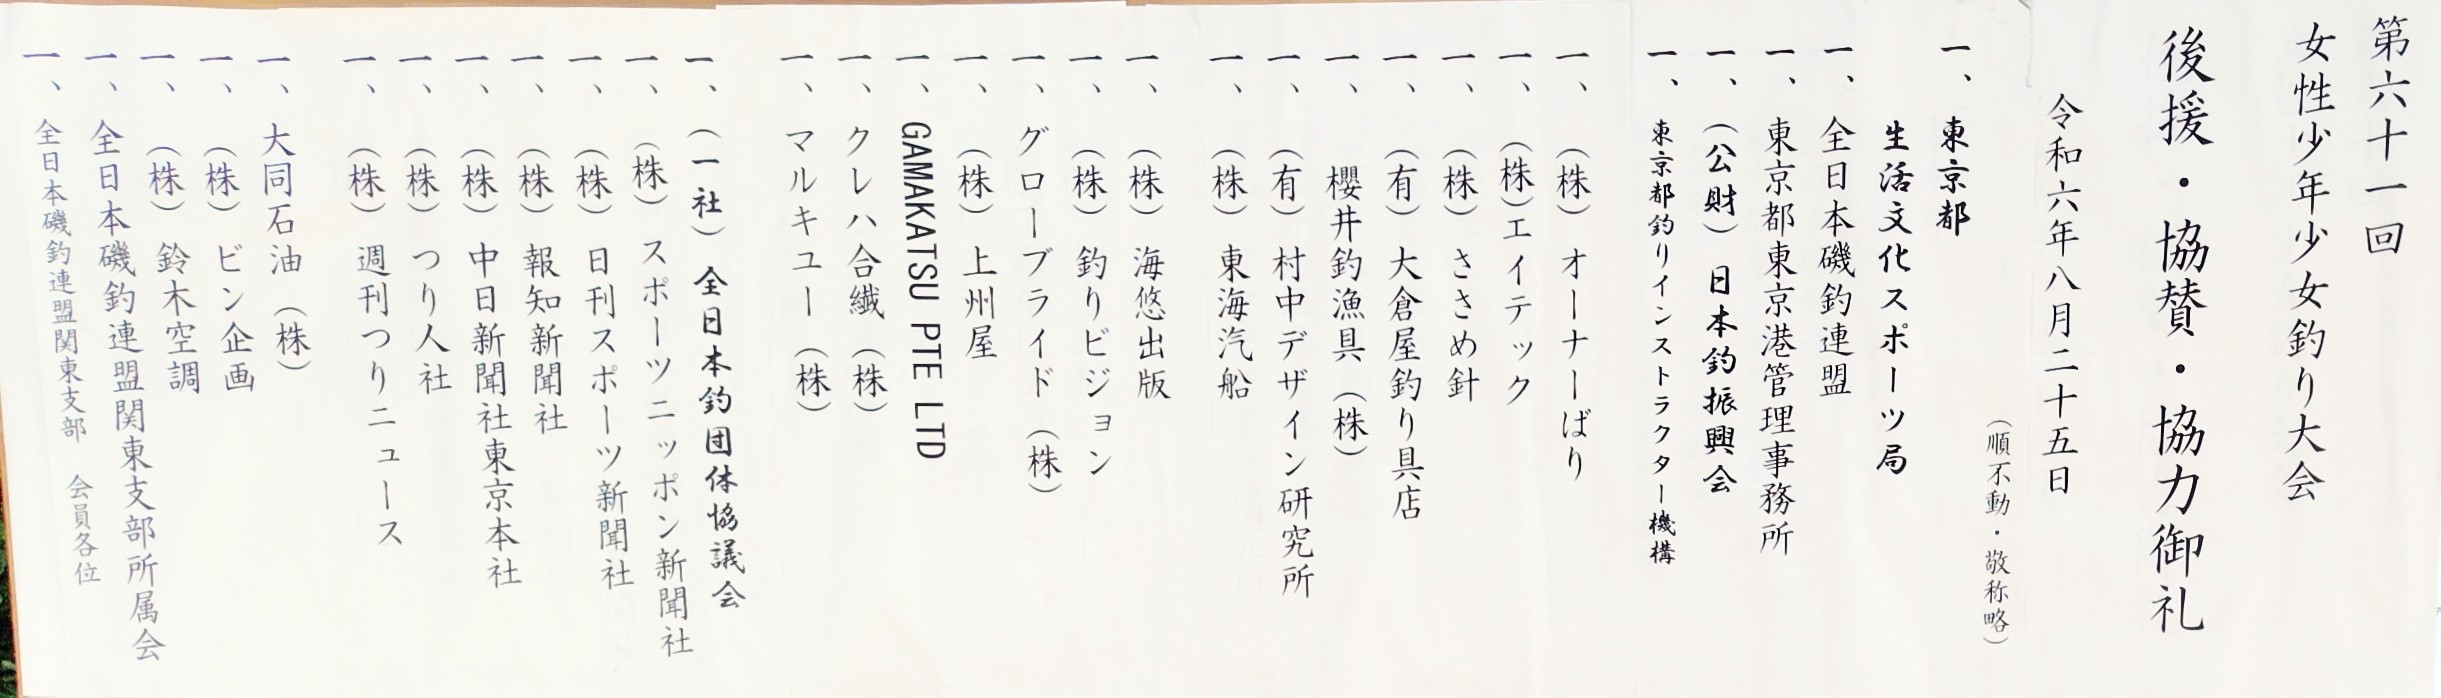 第六十一回
女性少年少女釣り大会
後援・協賛・協力御礼
令和六年八月二十五日
（順不動・敬称略）
一、東京都
生活文化スポーツ局
一、全日本磯釣連盟
一、東京都東京港管理事務所
一、（公財）日本釣振興会
一、東京都釣りインストラクター機構
一、（株）オーナーばり
一、（株）エイテック
一、（株）ささめ針
一、（有）大倉屋釣り具店
一、櫻井釣漁具（株）
一、（有）村中デザイン研究所
一、（株）東海汽船
一、（株）海悠出版
一、（株）釣りビジョン
一、グローブライド（株）
一、（株）上州屋
一、GAMAKATSU PTE LTD
一、クレハ合繊（株）
一、マルキユー（株）
一、（一社）全日本釣団体協議会
一、（株）スポーツニッポン新聞社
一、（株）日刊スポーツ新聞社
一、（株）報知新聞社
一、（株）中日新聞社東京本社
一、（株）つり人社
一、（株）週刊つりニュース
一、大同石油（株）
一、（株）ビン企画
一、（株）鈴木空調
一、全日本磯釣連盟関東支部所属会
一、全日本磯釣連盟関東支部　会員各位